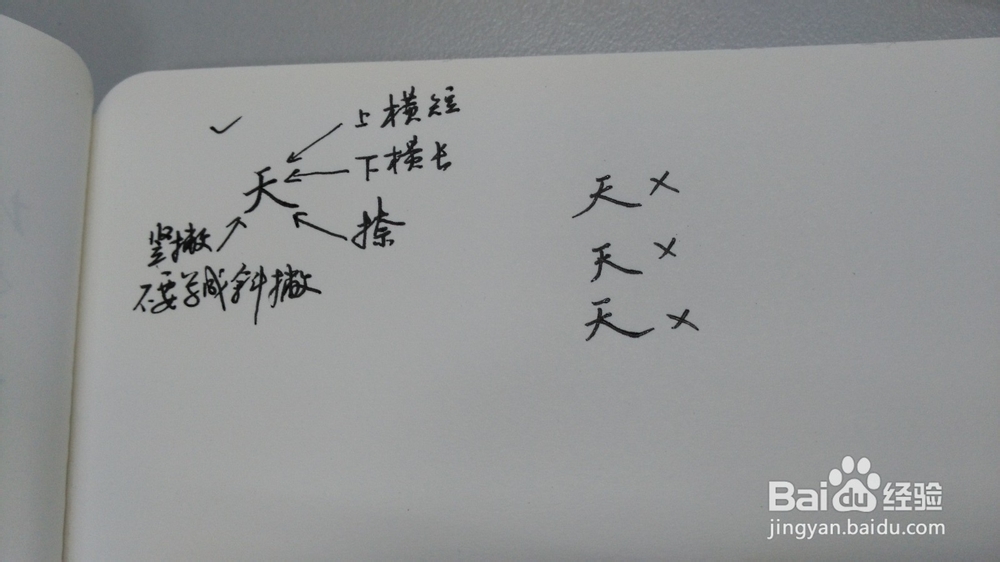 ✓
上横短
下横长
天
捺
竖撇
不要写成斜撇
天 ×
天 ×
天 ×
Baidu经验
jingyan.baidu.com